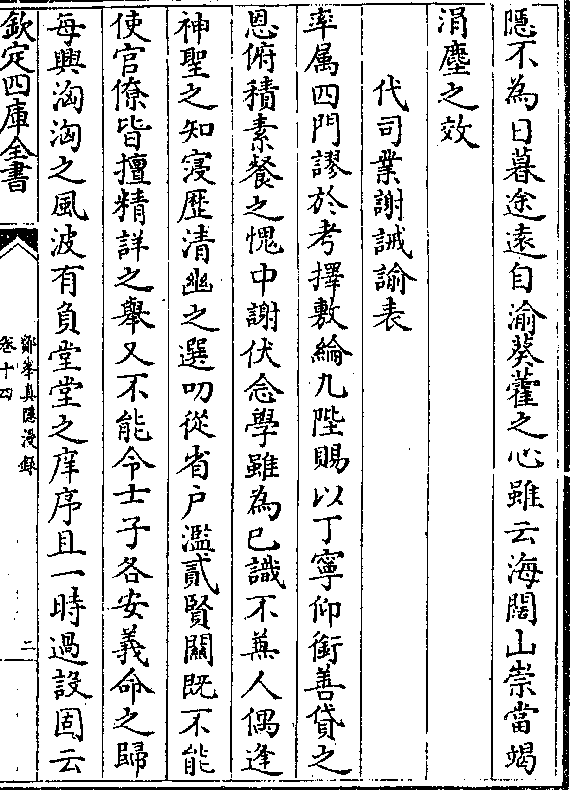 隱不為日暮途遠自渝葵藿之心雖云海闊山崇當竭
涓塵之效
代司業謝誡諭表
率属四門謬於考擇敷綸九陛賜以丁寧仰銜善貸之
恩俯積素餐之愧中謝伏念學雖為己識不兼人偶逢
神聖之知寖歷清幽之選叨從省户濫貳賢關既不能
使官僚皆擅精詳之舉又不能令士子各安義命之歸
每興洶洶之風波有負堂堂之庠序且一時過設固云
欽定四庫全書
鄮峯真隱漫録
卷十四
二